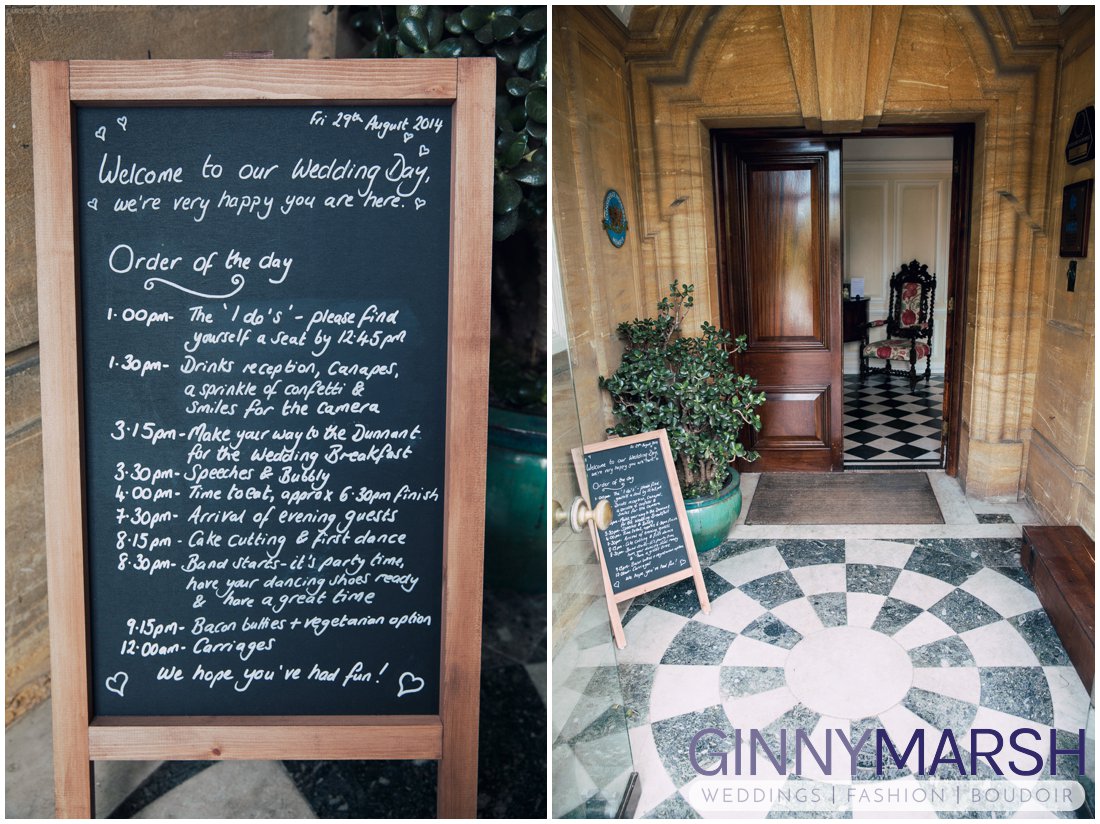 Fri 29th August 2014
Welcome to our Wedding Day,
we're very happy you are here.
Order of the day
1.00pm- The 'I do's' - please find
yourself a seat by 12.45pm
1.30pm- Drinks reception, Canapes,
a sprinkle of confetti &
smiles for the camera
3.15pm- Make your way to the Dunnant
for the Wedding Breakfast
3.30pm- Speeches & Bubbly
4.00pm- Time to eat, approx 6.30pm finish
7.30pm- Arrival of evening guests
8.15pm- Cake cutting & first dance
8.30pm- Band starts - it's party time,
have your dancing shoes ready
& have a great time
9.15pm- Bacon butties + vegetarian option
12.00am- Carriages
We hope you've had fun!
Welcome to our Wedding Day,
we're very happy you are here.
Order of the day
We hope you've had fun!
GINNYMARSH
WEDDINGS | FASHION | BOUDOIR